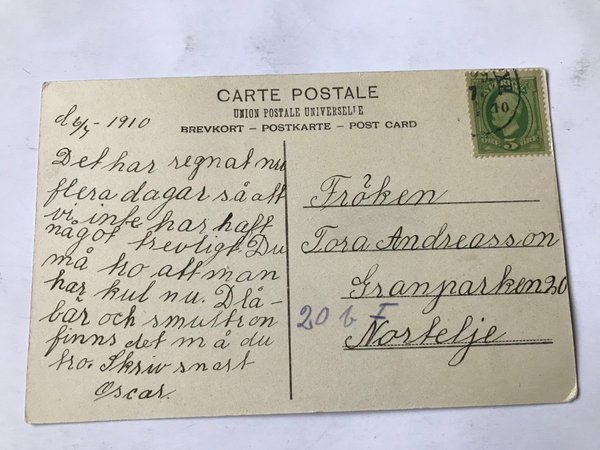 CARTE POSTALE
UNION POSTALE UNIVERSELLE
BREVKORT - POSTKARTE - POST CARD
d. 6/7 - 1910
Det har regnat nu
flera dagar så att
vi inte har haft
något trevligt. Du
må tro att man
har kul nu. Blå-
bär och smultron
finns det må du
tro. Skriv snart
Oscar.
10
5
ÖRE
Fröken
Tora Andreasson
Granparken 20
20 b I
Nortelje